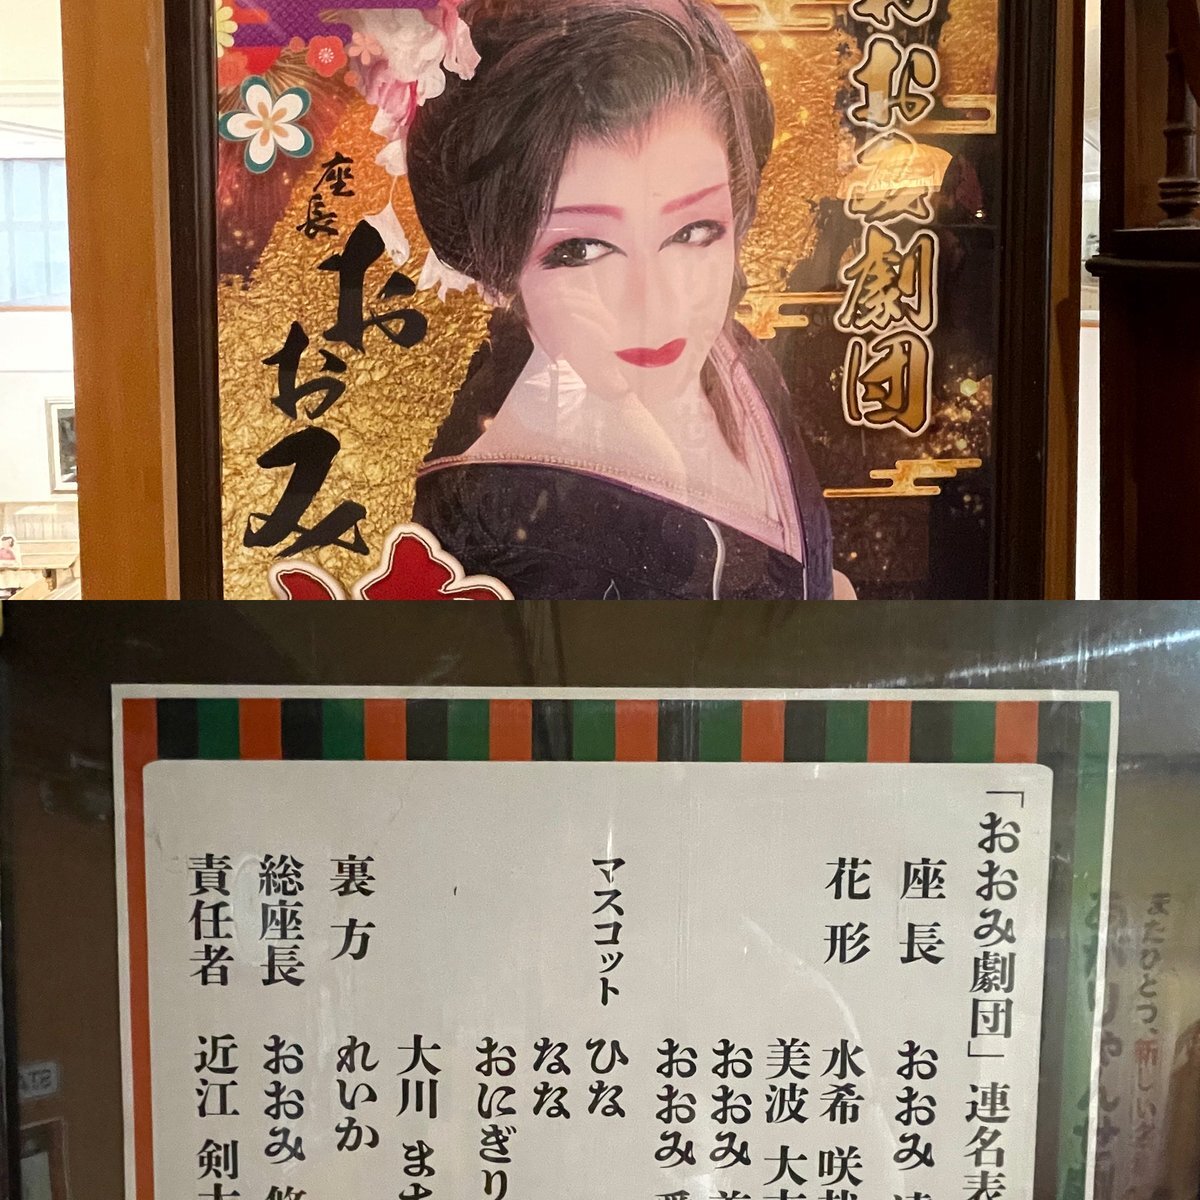 おおみ劇団
座長
おおみ
「おおみ劇団」連名表
座長 おおみ
花形 水希 咲
美波 大
おおみ
おおみ
マスコット ひな
なな
おにぎり
大川 ま
裏方 れいか
総座長 おおみ 悠
責任者 近江 剣
またひとつ、新しい